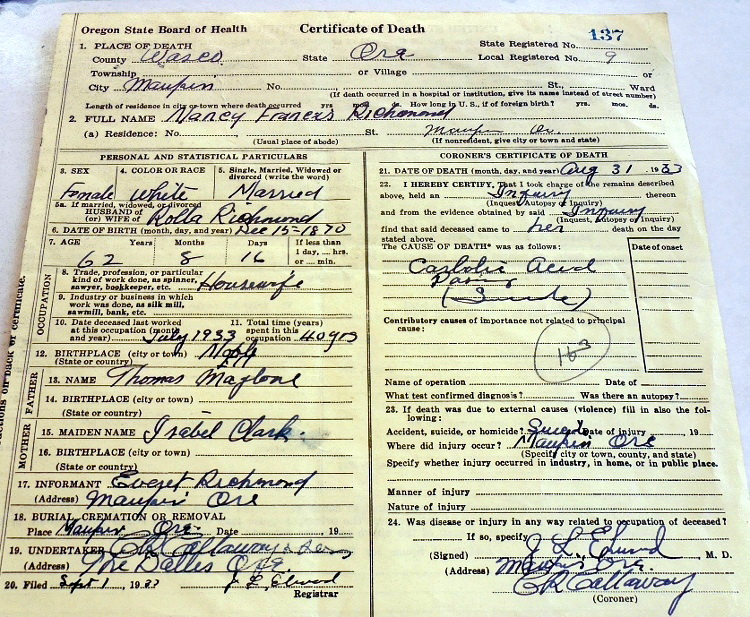 Oregon State Board of Health
Certificate of Death
137
1. PLACE OF DEATH
State Registered No.
County Wasco State Ore Local Registered No. 9
Township or Village or
City Maupin No. St., Ward
(If death occurred in a hospital or institution, give its name instead of street number)
Length of residence in city or town where death occurred yrs. mos. ds. How long in U. S., if of foreign birth? yrs. mos. ds.
2. FULL NAME Nancy Frances Richmond
(a) Residence: No. St. Maupin Ore.
(Usual place of abode) (If nonresident, give city or town and state)
PERSONAL AND STATISTICAL PARTICULARS
3. SEX 4. COLOR OR RACE 5. Single, Married, Widowed or
divorced (write the word)
Female White Married
5a. If married, widowed, or divorced
HUSBAND of
(or) WIFE of Rolla Richmond
6. DATE OF BIRTH (month, day, and year) Dec 15-1870
7. AGE Years Months Days If less than
1 day, ... hrs.
or ... min.
62 8 16
OCCUPATION
8. Trade, profession, or particular
kind of work done, as spinner,
sawyer, bookkeeper, etc. Housewife
9. Industry or business in which
work was done, as silk mill,
sawmill, bank, etc.
10. Date deceased last worked
at this occupation (month
and year) July 1933
11. Total time (years)
spent in this
occupation 40 yrs
12. BIRTHPLACE (city or town)
(State or country)
FATHER
13. NAME Thomas
14. BIRTHPLACE (city or town)
(State or country)
MOTHER
15. MAIDEN NAME Isabel Clark
16. BIRTHPLACE (city or town)
(State or country)
17. INFORMANT Everet Richmond
(Address) Maupin Ore
18. BURIAL, CREMATION OR REMOVAL
Place Maupin Ore. Date 19
19. UNDERTAKER Callaway
(Address) The Dalles Ore.
20. Filed Sept 1, 19 J. L. Elwood
Registrar
CORONER'S CERTIFICATE OF DEATH
21. DATE OF DEATH (month, day, and year) Aug 31 1933
22. I HEREBY CERTIFY, That I took charge of the remains described
above, held an Inquiry thereon
(Inquest, Autopsy or Inquiry)
and from the evidence obtained by said Inquiry
(Inquest, Autopsy or Inquiry)
find that said deceased came to her death on the day
stated above.
The CAUSE OF DEATH* was as follows:
Date of onset
Carbolic Acid
(Suicide)
Contributory causes of importance not related to principal
cause:
163
Name of operation Date of
What test confirmed diagnosis? Was there an autopsy?
23. If death was due to external causes (violence) fill in also the fol-
lowing:
Accident, suicide, or homicide? Suicide Date of injury 19
Where did injury occur? Maupin Ore
(Specify city or town, county, and state)
Specify whether injury occurred in industry, in home, or in public place.
Manner of injury
Nature of injury
24. Was disease or injury in any way related to occupation of deceased?
If so, specify
(Signed) J. L. Elwood M. D.
(Address) Maupin Ore.
C R Callaway
(Coroner)